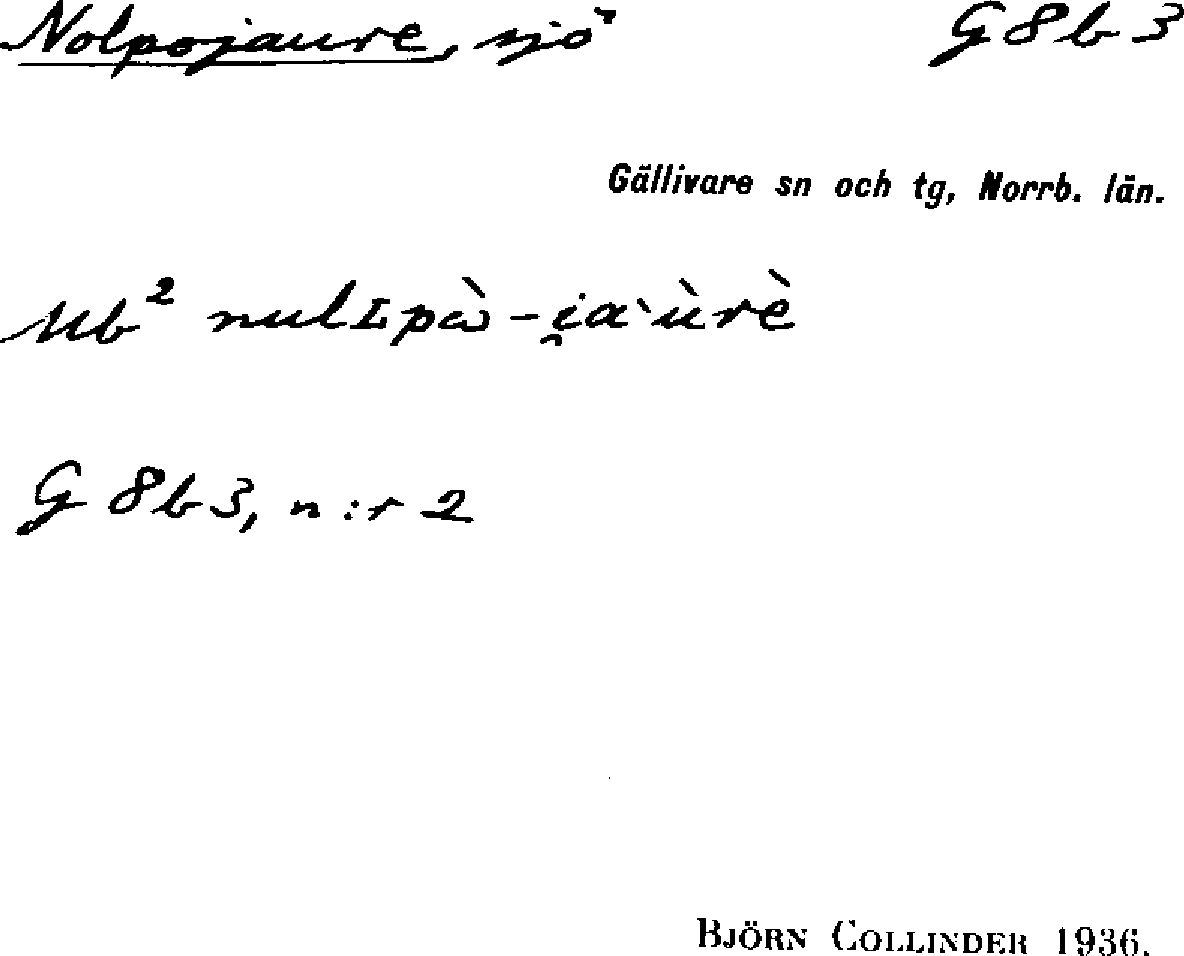 Nolpojaure, sjö G8b3
Gällivare sn och tg, Norrb. län.
Ub² nulʟpὼ-i̯a`ùrè
G 8b3, n:r 2
BJÖRN COLLINDER 1936.